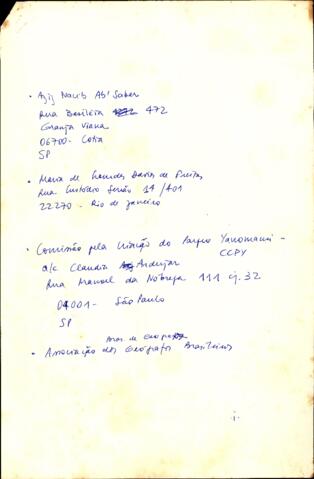 • Aziz Nacib Ab'Saber
Rua Brasileia 472
Granja Viana
06700 - Cotia
SP
• Maria de Lourdes Davies de Freitas
Rua Custódio Serrão 14/401
22270 - Rio de Janeiro
• Comissão pela Criação do Parque Yanomami -
CCPY
a/c Claudia Andujar
Rua Manoel da Nóbrega 111 cj. 32
04001 - São Paulo
SP
• Associação dos Geógrafos Brasileiros